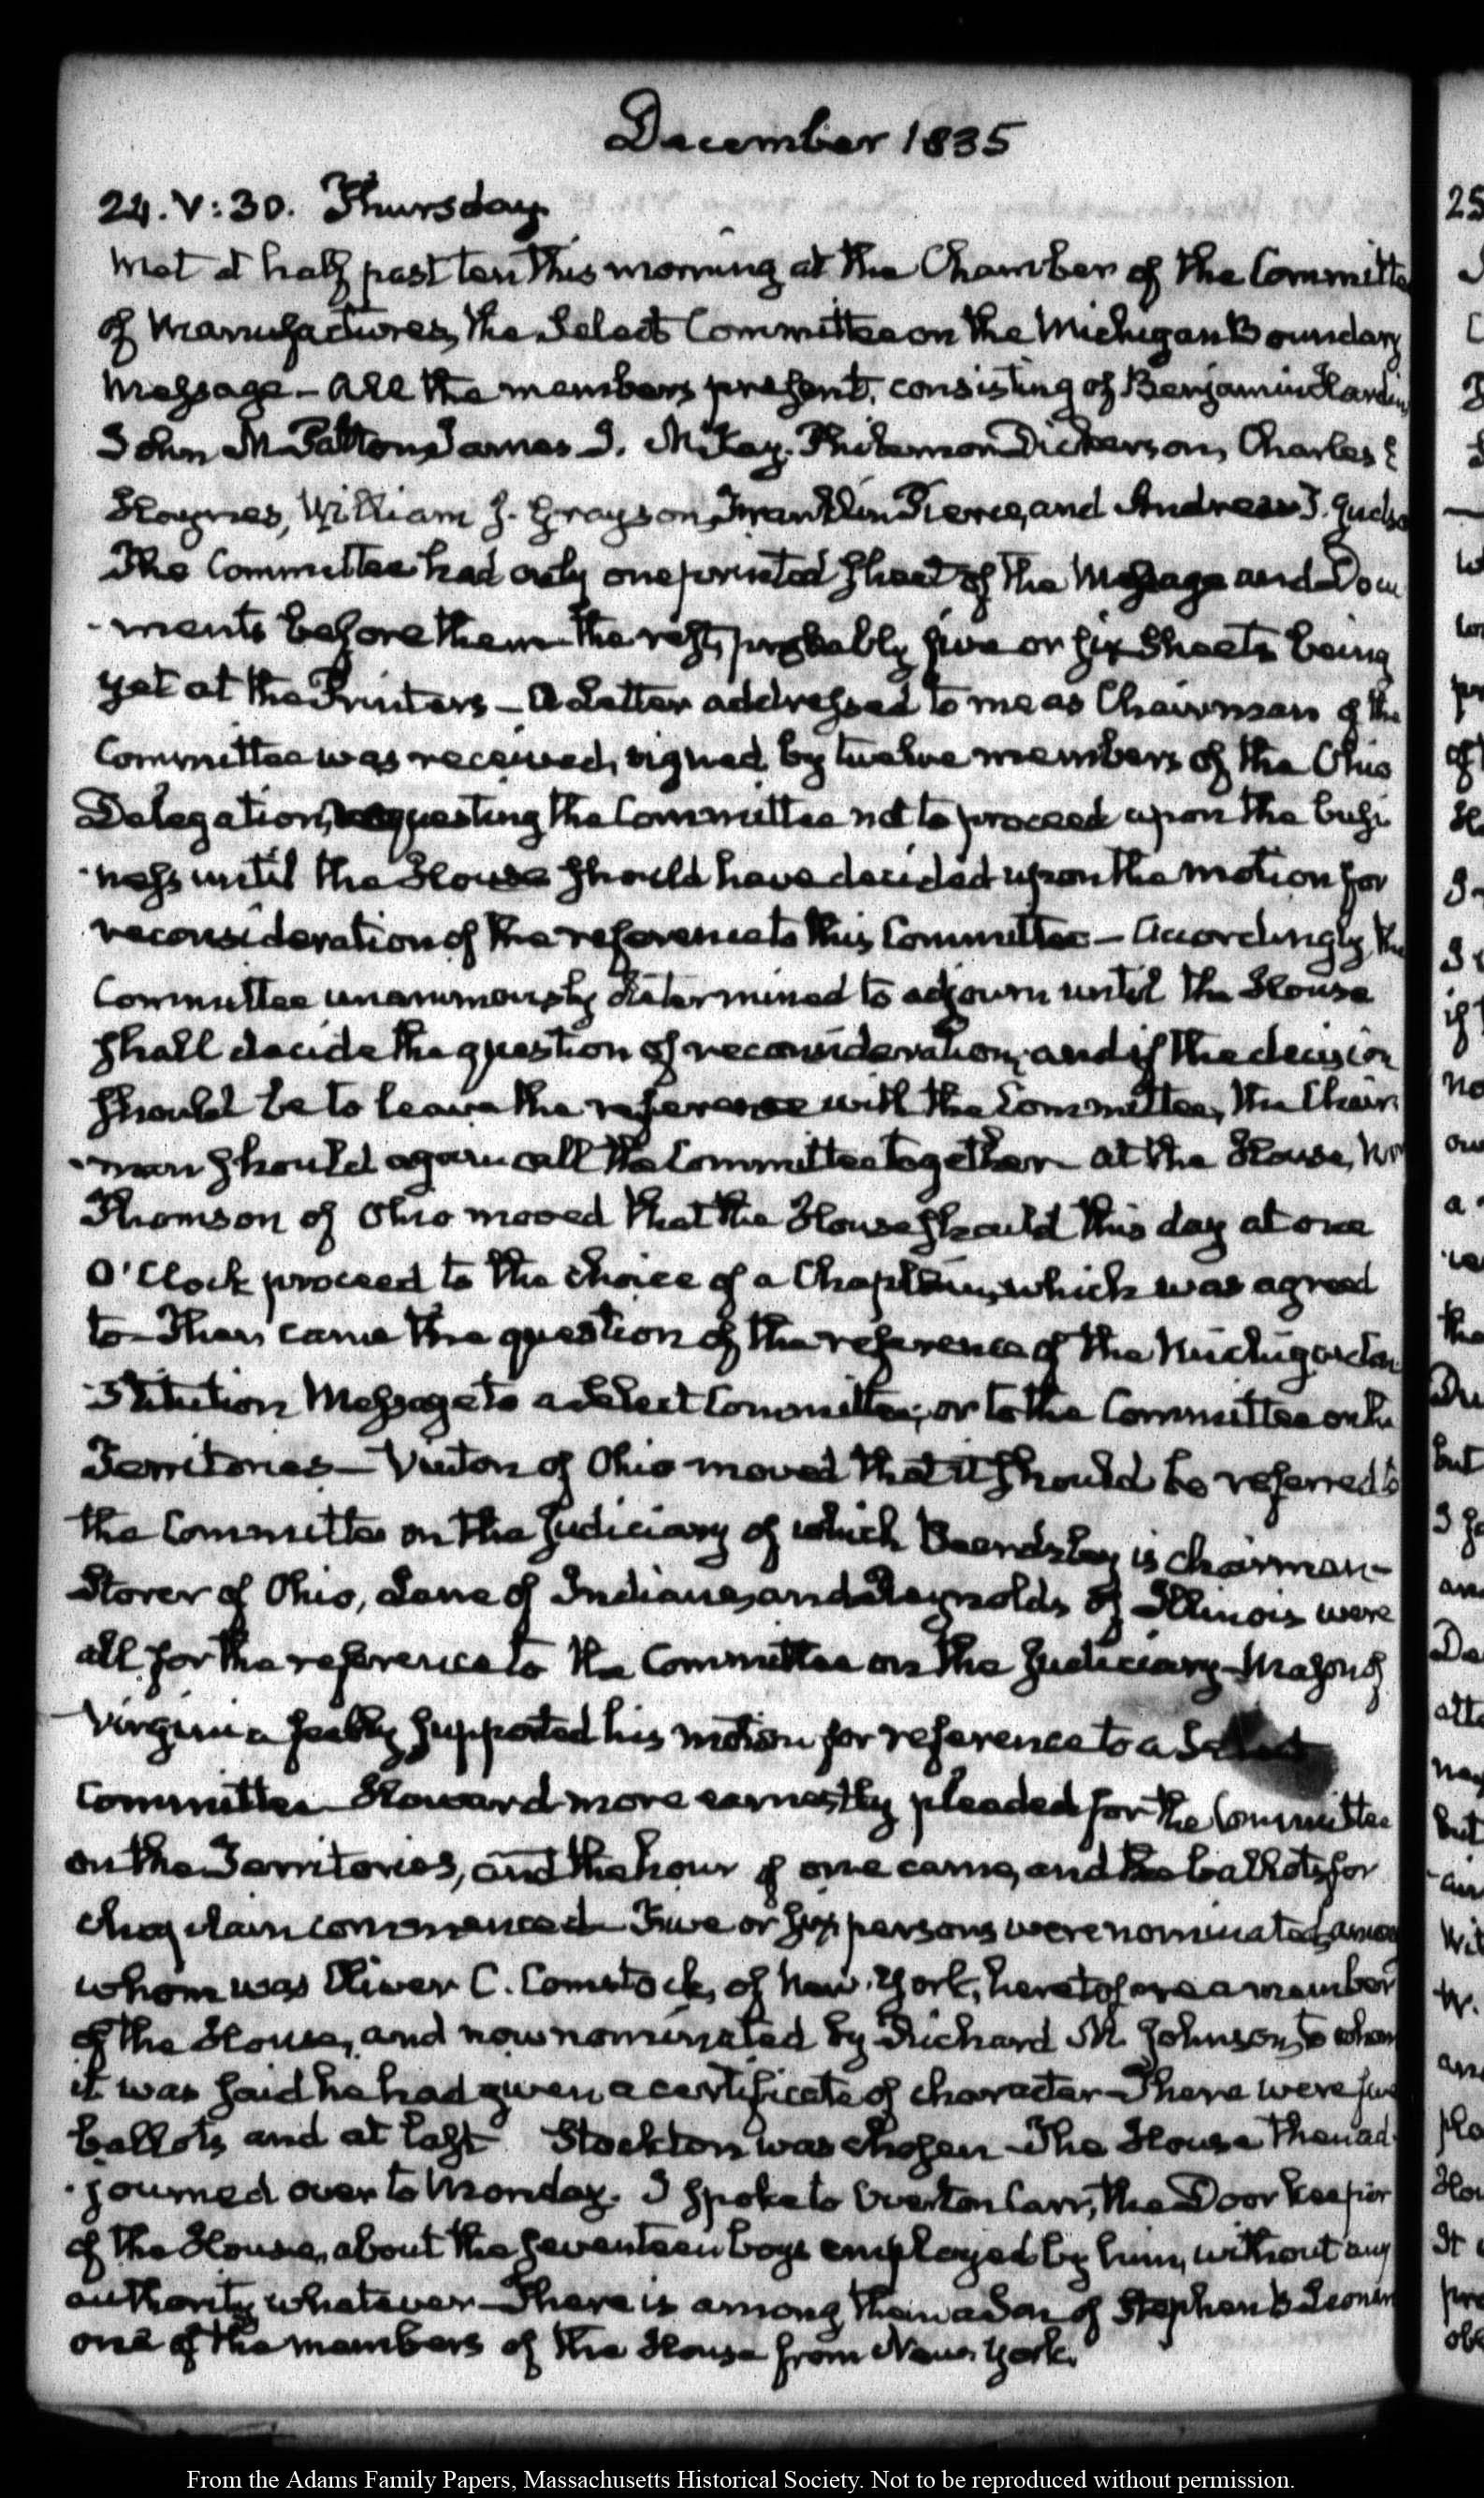 December 1835
24. V:30. Thursday.
Met at half past ten this morning at the Chamber of the Committee
of Manufactures, the Select Committee on the Michigan Boundary
Message – All the members present, consisting of Benjamin Hardin,
John M Patton, James I. McKay. Philemon Dickerson, Charles E
Haynes, William J. Grayson, Franklin Pierce, and Andrew T. Judson
The Committee had only one printed sheet of the Message and Docu
-ments before them the rest, probably five or six sheets being
yet at the Printers – A Letter addressed to me as Chairman of the
Committee was received, signed by twelve members of the Ohio
Delegation, requesting the Committee not to proceed upon the busi
-ness until the House should have decided upon the motion for
reconsideration of the reference to this Committee – Accordingly, the
Committee unanimously determined to adjourn until the House
shall decide the question of reconsideration; and if the decision
should be to leave the reference with the Committee, the Chair
-man should again call the Committee together at the House,
Thomson of Ohio moved that the House should this day at one
O'Clock proceed to the choice of a Chaplain, which was agreed
to – Then came the question of the reference of the Michigan Con
-stitution Message to a select Committee, or to the Committee on the
Territories – Vinton of Ohio moved that it should be referred to
the Committee on the Judiciary of which Beardsley is chairman –
Storer of Ohio, Lane of Indiana, and Reynolds of Illinois were
all for the reference to the Committee on the Judiciary – Mason of
Virginia feebly supported his motion for reference to a Select
Committee – Howard more earnestly pleaded for the Committee
on the Territories, and the hour of one came, and the ballots for
chaplain commenced – Five or six persons were nominated, among
whom was Oliver C. Comstock, of New-York, heretofore a member
of the House, and now nominated by Richard M Johnson, to whom
it was said he had given a certificate of character – There were five
ballots and at last Stockton was chosen – The House then ad
-journed over to Monday. I spoke to Overton Carr, the Door keeper
of the House, about the seventeen boys employed by him, without any
authority whatever – There is among them a Son of Stephen B Leonard
one of the members of the House from New-York.
From the Adams Family Papers, Massachusetts Historical Society. Not to be reproduced without permission.